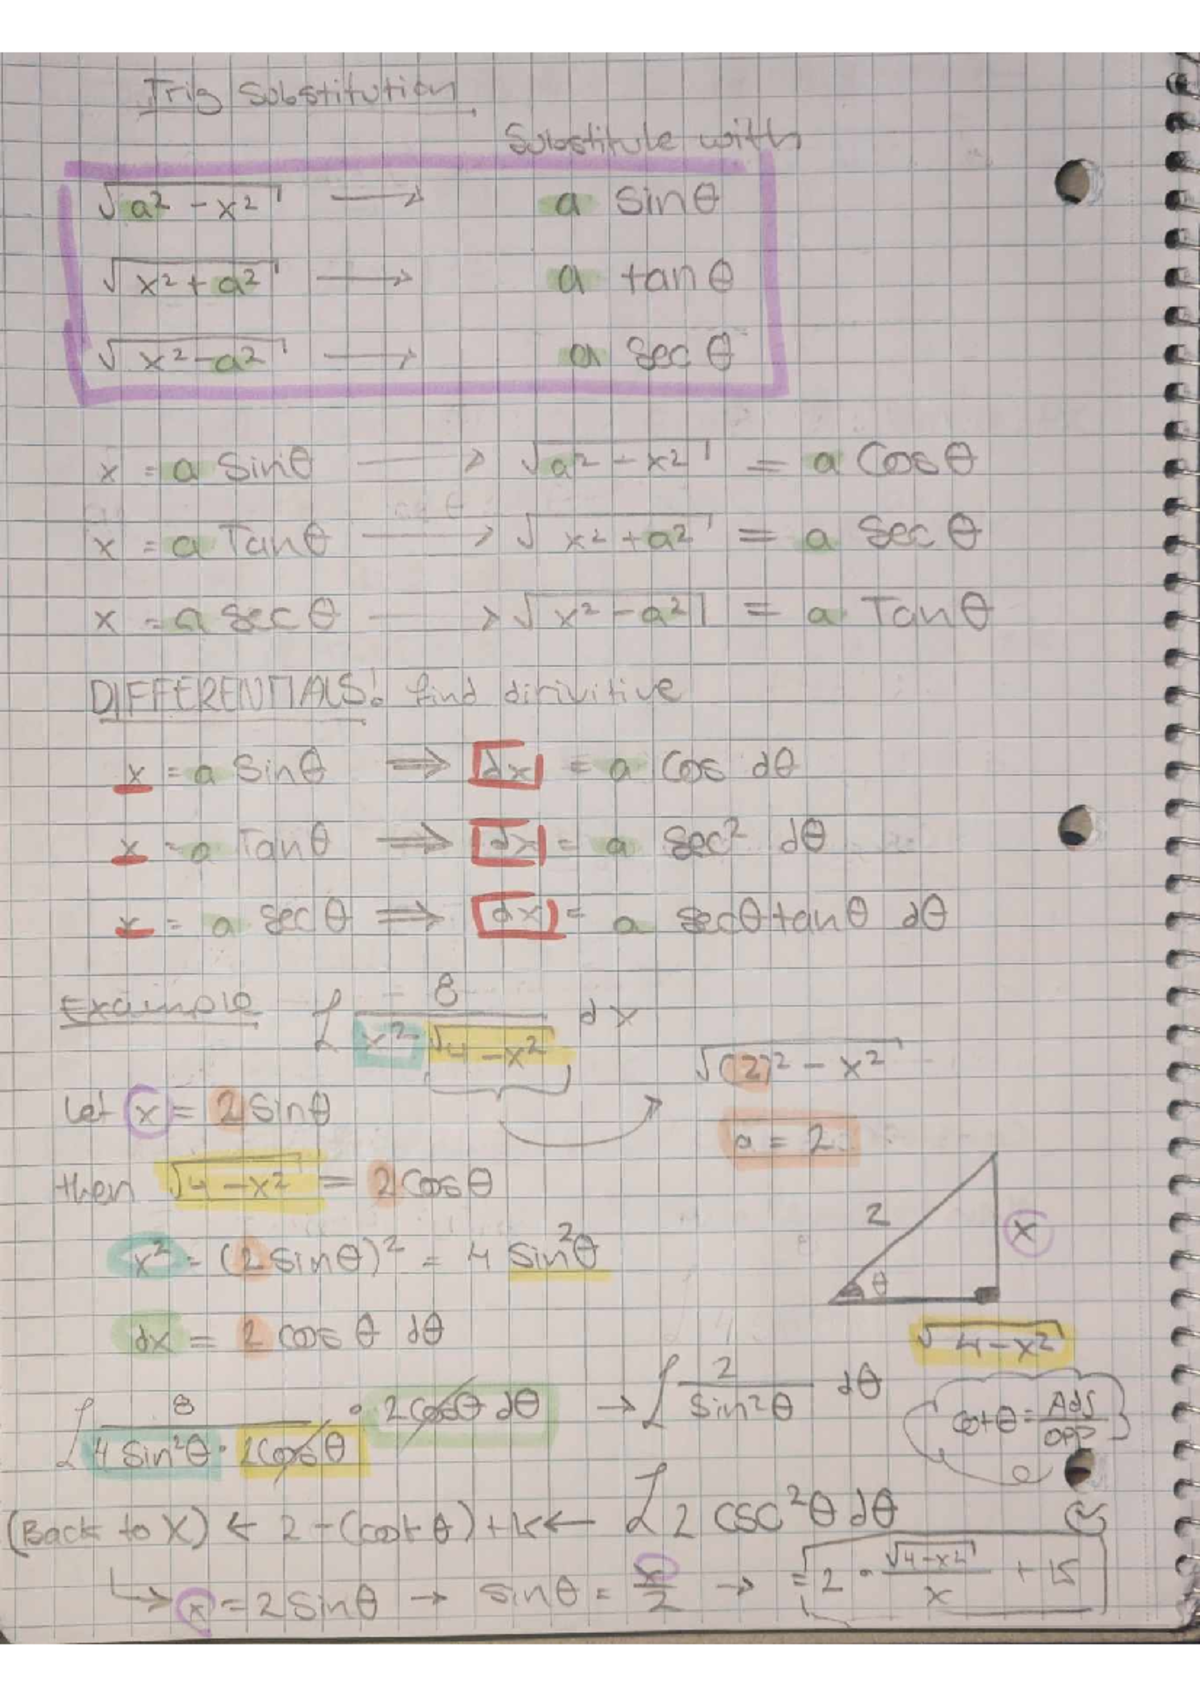 Trig Substitution
Substitute with
√a² - x² → a sinθ
√x² + a² → a tanθ
√x² - a² → a secθ
x = a Sinθ → √a² - x² = a Cosθ
x = a Tanθ → √x² + a² = a Secθ
x = a secθ → √x² - a² = a Tanθ
DIFFERENTIALS: find dirivitive
x = a Sinθ ⇒ dx = a Cos dθ
x = a Tanθ ⇒ dx = a Sec² dθ
x = a secθ ⇒ dx = a secθtanθ dθ
Example ∫ 8 / x² √4 - x² dx
√(2)² - x²
Let x = 2 Sinθ
a = 2
then √4 - x² = 2 Cosθ
2 x
θ
x² = (2 Sinθ)² = 4 Sin²θ
dx = 2 cosθ dθ
√4 - x²
∫ 8 / 4 Sin²θ · 2Cosθ · 2Cosθ dθ → ∫ 2 / Sin²θ dθ
Cotθ = Adj / OPP
(Back to X) ← 2 - (cotθ) + K ← ∫ 2 csc²θ dθ
↳ x = 2 Sinθ → Sinθ = x / 2 → = 2 · √4 - x² / x + K